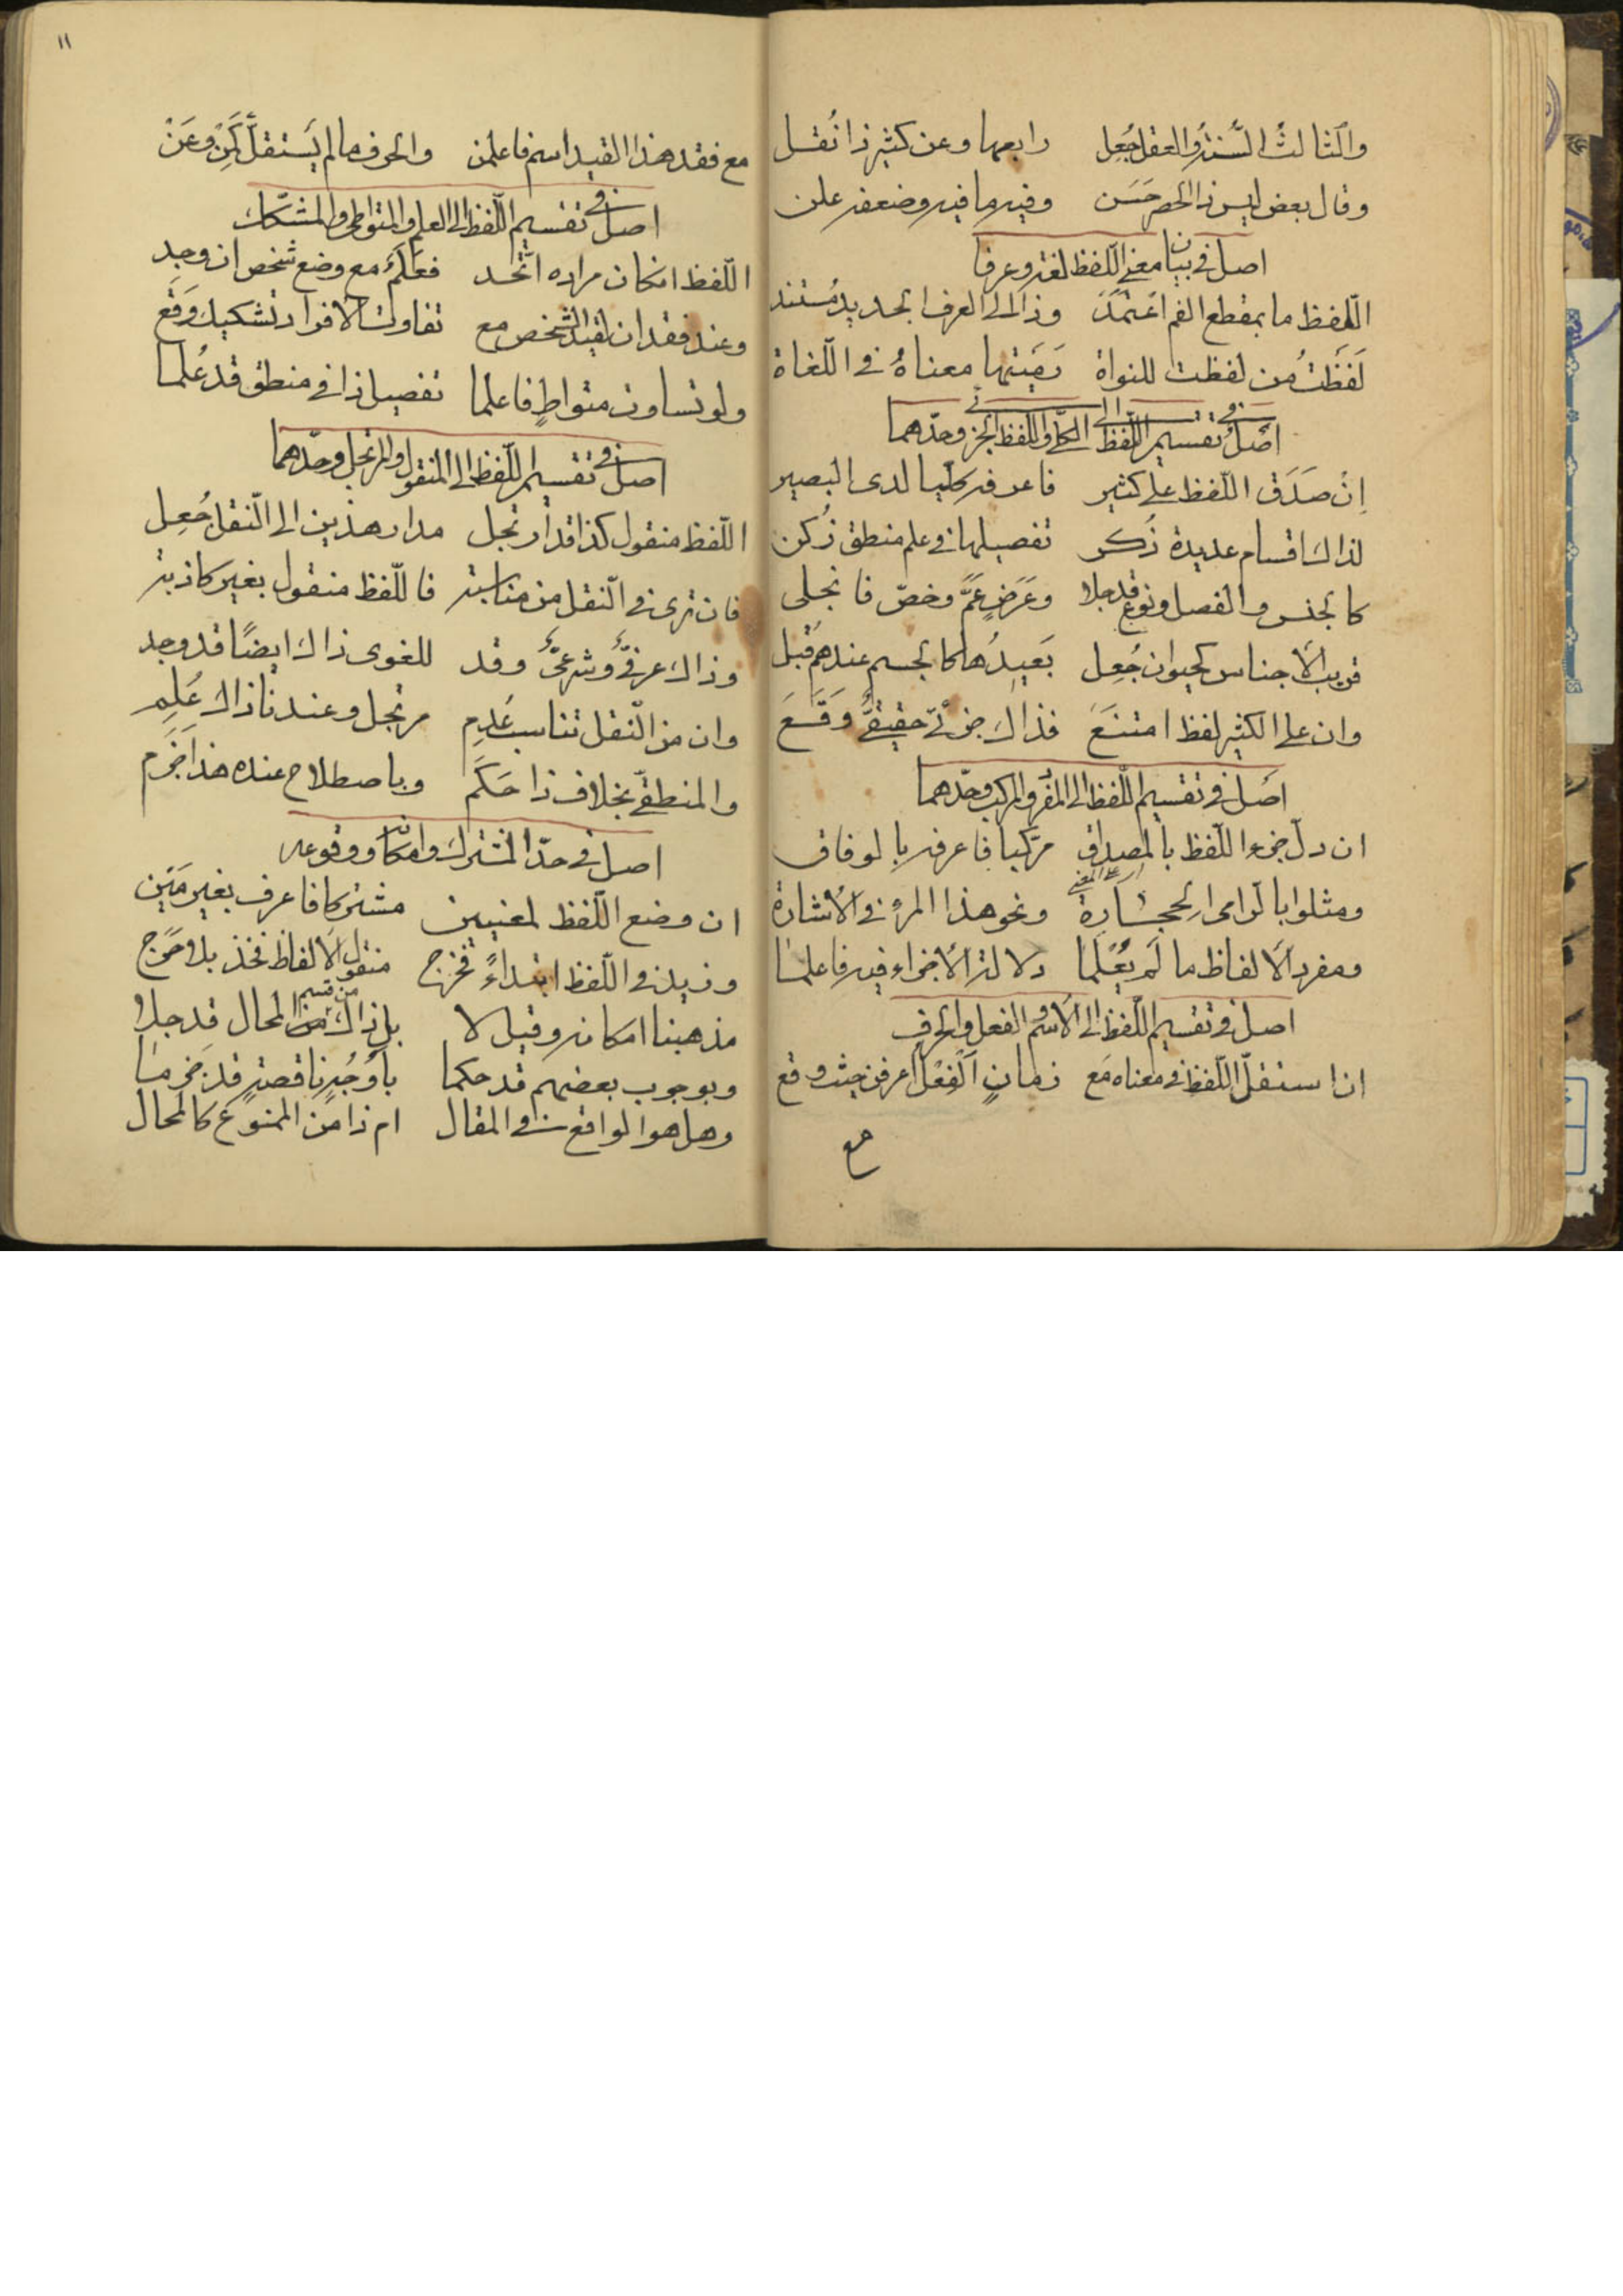 والثالث السنة والعقل جُعِل رابعها وعن كثير ذا نُقل
وقال بعض ليس ذا الحصر حَسَن وفيه ما فيه وضعفه علن
اصل في بيان معنى اللّفظ لغة وعرفا
اللّفظ ما بمقطع الفم اعتمَدَ وذا الى العرف بتحديد مُستند
لَفَظْتُ من لفظت للنواة رَمَيتها معناهُ في اللّغاة
اصلٌ في تقسيم اللّفظ الى الكلّي واللفظ الجزئي وحدّهما
اِنْ صَدَق اللّفظ على كثير فاعرفه كلّيا لدى البصير
لذاك اقسام عديدة ذُكر تفصيلها في علم منطق زُكن
كالجنس والفصل ونوع قد جلا وعَرَضٍ عَمَّ وخصّ فانجلى
قريب الأجناس كحيوان جُعِل بَعيدُها كالجسم عندهم قُبل
وان على الكثير لفظ امتنَعَ فذاك جزئيّ حقيقيٌّ وَقَعَ
اصل في تقسيم اللّفظ الى المفرد والمركب وحدّهما
ان دلّ جزء اللّفظ بالمصداق مركّبا فاعرفه بالوفاق
على المعنى
ومثلوا بالرامى الحجارة ونحو هذا المرء في الأشارة
ومفرد الألفاظ ما لَم يُعْلَما دلالة الأجزاء فيه فاعلما
اصل في تقسيم اللّفظ الى الأسم والفعل والحرف
اذا ستقلّ اللّفظ في معناه مَع زمانٍ الفِعْل اعرفن حيث وقع
مع
١١
مع فقد هذا القيد اسم فاعلمن والحرف ما لم يَستقلّ كَمِنْ وعَنْ
اصل في تقسيم اللّفظ الى العلم والمتواطى والمشكّك
اللّفظ انكان مراده اتّحد فعَلَمٌ مع وضع شخص ان وجد
وعند فقدان لقيد الشخص مع تفاوت الأفراد تشكيك وَقَع
ولو تساوت متواطٍ فاعلما تفصيل ذا في منطق قد عُلما
اصل في تقسيم اللّفظ الى المنقول والمرتجل وحدّهما
اللّفظ منقول كذا قد ارتجل مدار هذين الى النّقل جُعِل
فان ترى في النّقل من مناسبة فاللّفظ منقول بغير كاذبة
وذاك عرفيٌّ وشرعيٌّ وقد للغوى ذاك ايضًا قد وجد
وان من النّقل تناسب عُدِم مرتجل وعندنا ذاك عُلِم
والمنطقيّ بخلاف ذا حَكَم وباصطلاح عنده هذا جَزَم
اصل في حدّ المشترك وامكانه ووقوعه
ان وضع اللّفظ لمعنيين مشتركا فاعرف بغير مَيْن
وزيد في اللّفظ ابتداءً فخرج منقول الألفاظ فخذ بلا حَرج
من قسم
مذهبنا امكانه وقيل لا بل ذاك من المحال قد جلا
وبوجوب بعضهم قد حكما باوجُهٍ ناقصةٍ قد جزما
وهل هو الواقع في المقال ام ذا من الممنوع كالمحال